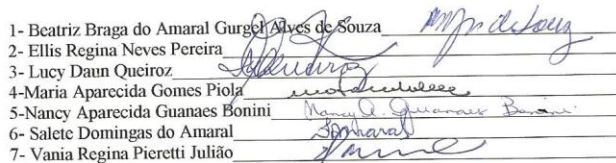 1- Beatriz Braga do Amaral Gurgel Alves de Souza
2- Ellis Regina Neves Pereira
3- Lucy Daun Queiroz
4-Maria Aparecida Gomes Piola
5-Nancy Aparecida Guanaes Bonini Nancy A. Guanaes Bonini.
6- Salete Domingas do Amaral
7- Vania Regina Pieretti Julião